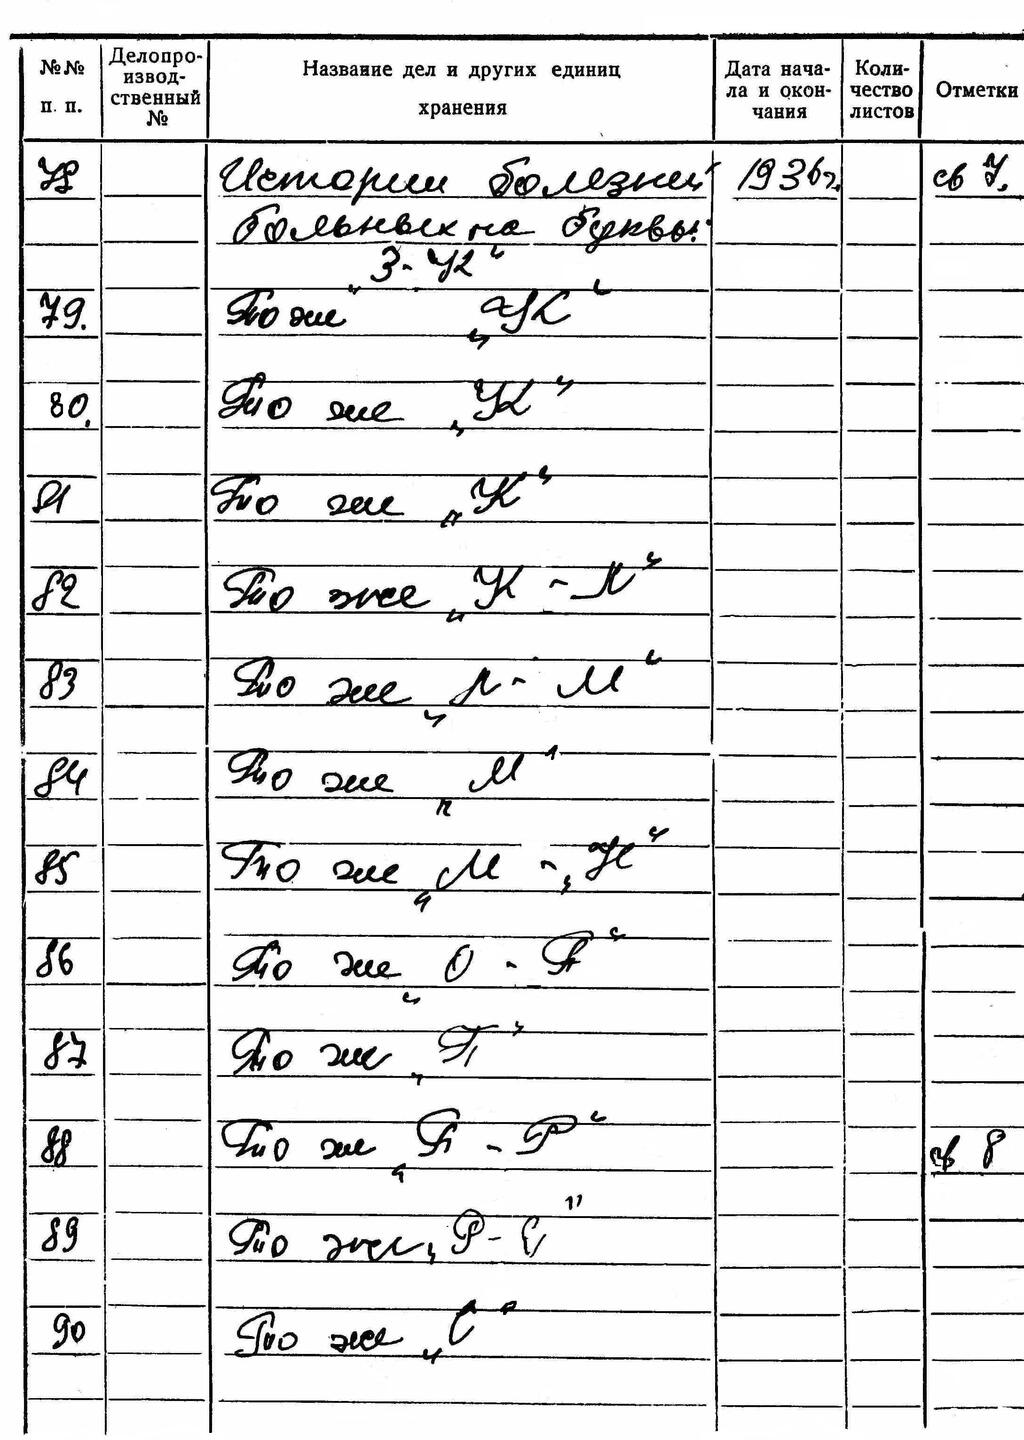 №№ п. п. Делопроизвод-ственный № Название дел и других единиц хранения Дата начала и окончания Количество листов Отметки
78 Истории болезней 1936г. св 7.
больных на буквы:
„З-К“
79. То же „К“
80. То же „К“
81 То же „К“
82 То же „К - Л“
83 То же „Л - М“
84 То же „М“
85 То же „М - „Н“
86 То же „О - П“
87 То же „П“
88 То же „П - Р“ св 8
89 То же „Р - С"
90 То же „С“